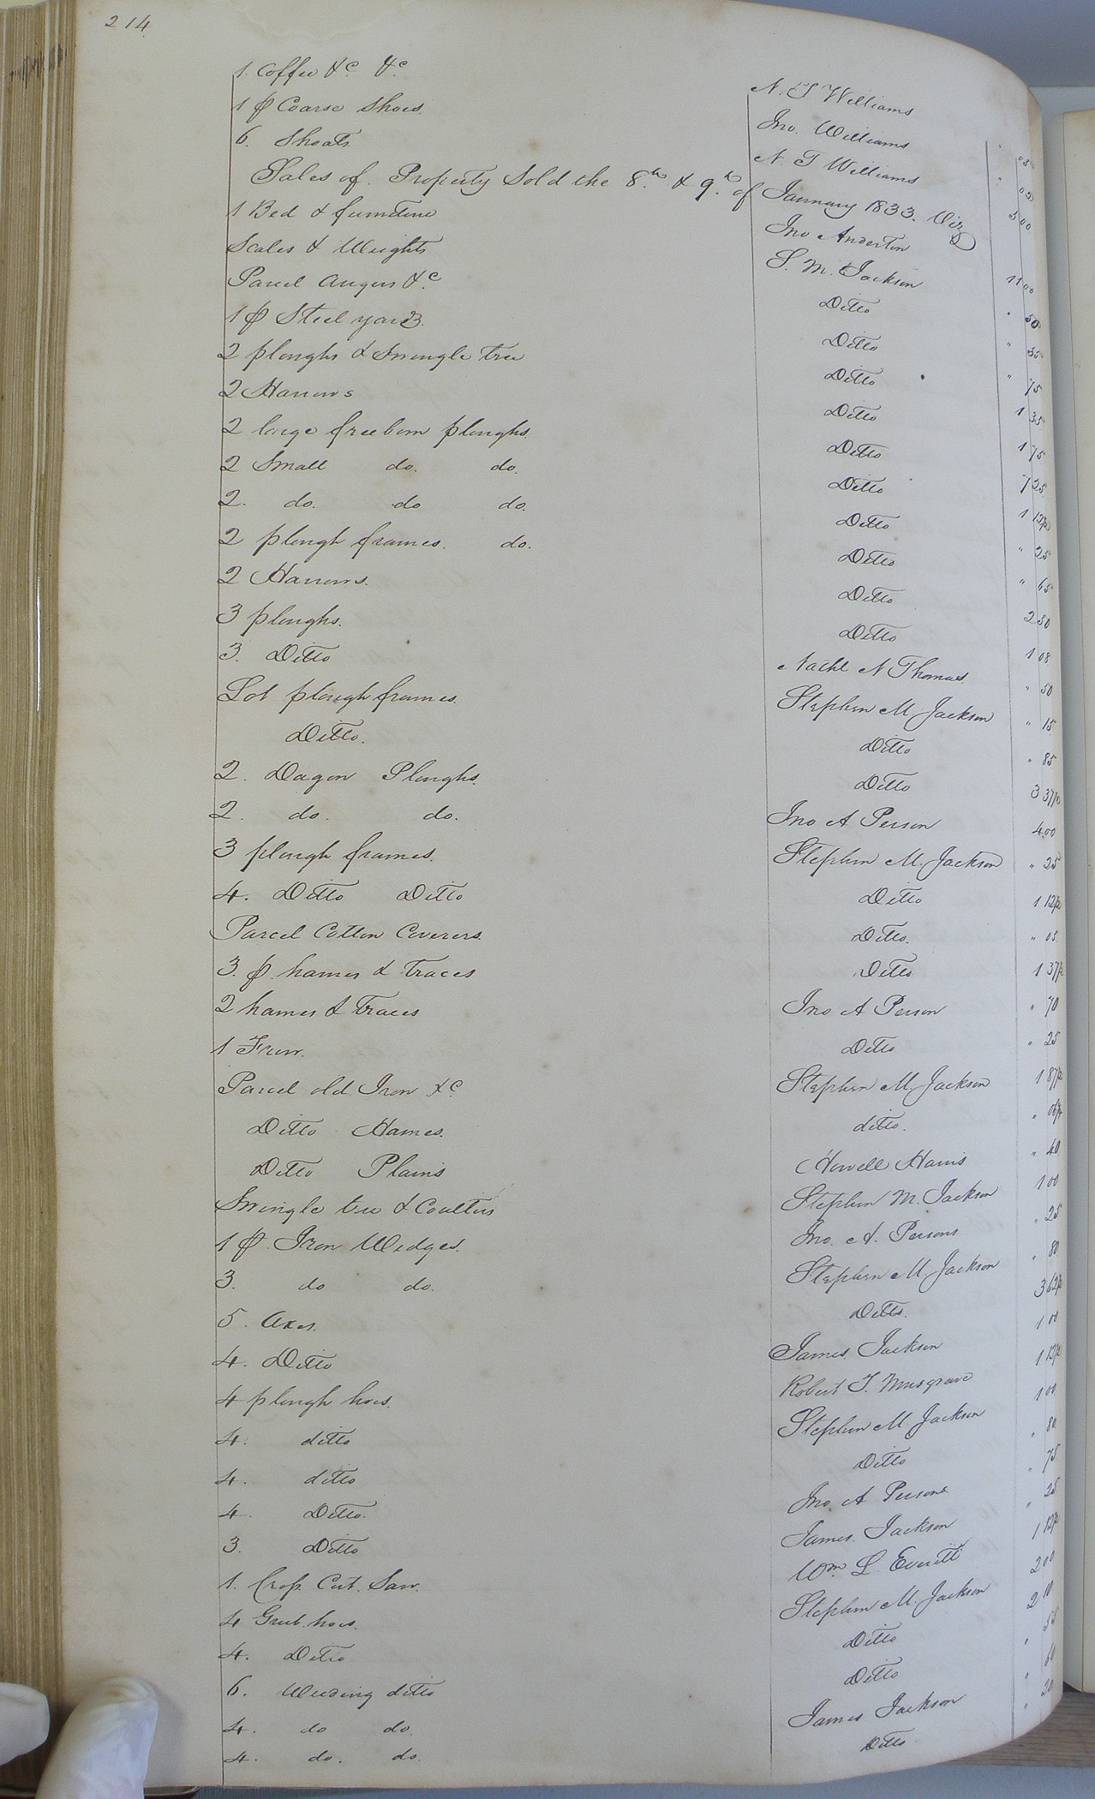 214
1. Coffee &c &c N. T Williams " 05
1 p Coarse Shoes. Jno. Williams " 05
6. Shoats N T Williams 5 00
Sales of Property Sold the 8th & 9th of January 1833. Viz
1 Bed & furniture Jno Anderton 11 00
Scales & Weights S. M. Jackson " 50
Parcel Augurs &c Ditto " 35
1 p Steel yards. Ditto " 75
2 ploughs & Swingle tree Ditto 1 35
2 Harrows Ditto 1 75
2 large freeborn ploughs Ditto 7 25
2 Small do. do. Ditto 1 12½
2. do. do do. Ditto " 25
2 plough frames. do. Ditto " 65
2 Harrows. Ditto 2 50
3 ploughs. Ditto 1 08
3. Ditto Nathl N Thomas " 50
Lot plough frames. Stephen M Jackson " 15
Ditto. Ditto " 85
2. Dagon Ploughs. Ditto 3 37½
2. do. do. Jno A Person 4 00
3 plough frames. Stephen M. Jackson " 25
4. Ditto Ditto Ditto 1 12½
Parcel Cotton Coverers. Ditto. " 05
3. p. hames & traces Ditto 1 37½
2 hames & Traces Jno A Person " 70
1 Frow. Ditto " 25
Parcel old Iron &c Stephen M. Jackson 1 87½
Ditto Hames. ditto. " 06¼
Ditto Plains Howell Harris " 40
Swingle tree & Coulters Stephen M. Jackson 1 00
1 p. Iron Wedges. Jno. A. Persons " 25
3. do do. Stephen M. Jackson " 80
5. Axes. Ditto. 3 62½
4. Ditto James. Jackson 1 00
4 plough hoes. Robert T. Musgrave 1 12½
4. ditto Stephen M. Jackson 1 00
4. ditto Ditto " 80
4 Ditto. Jno. A Persons " 75
3. Ditto James. Jackson " 25
1. Cross Cut. Saw. Wm L Everitt 1 12½
4 Grub. hoes. Stephen M. Jackson 2 00
4. Ditto Ditto 2 10
6. Weeding ditto Ditto " 55
4. do do James Jackson " 60
4. do. do. Ditto " 20